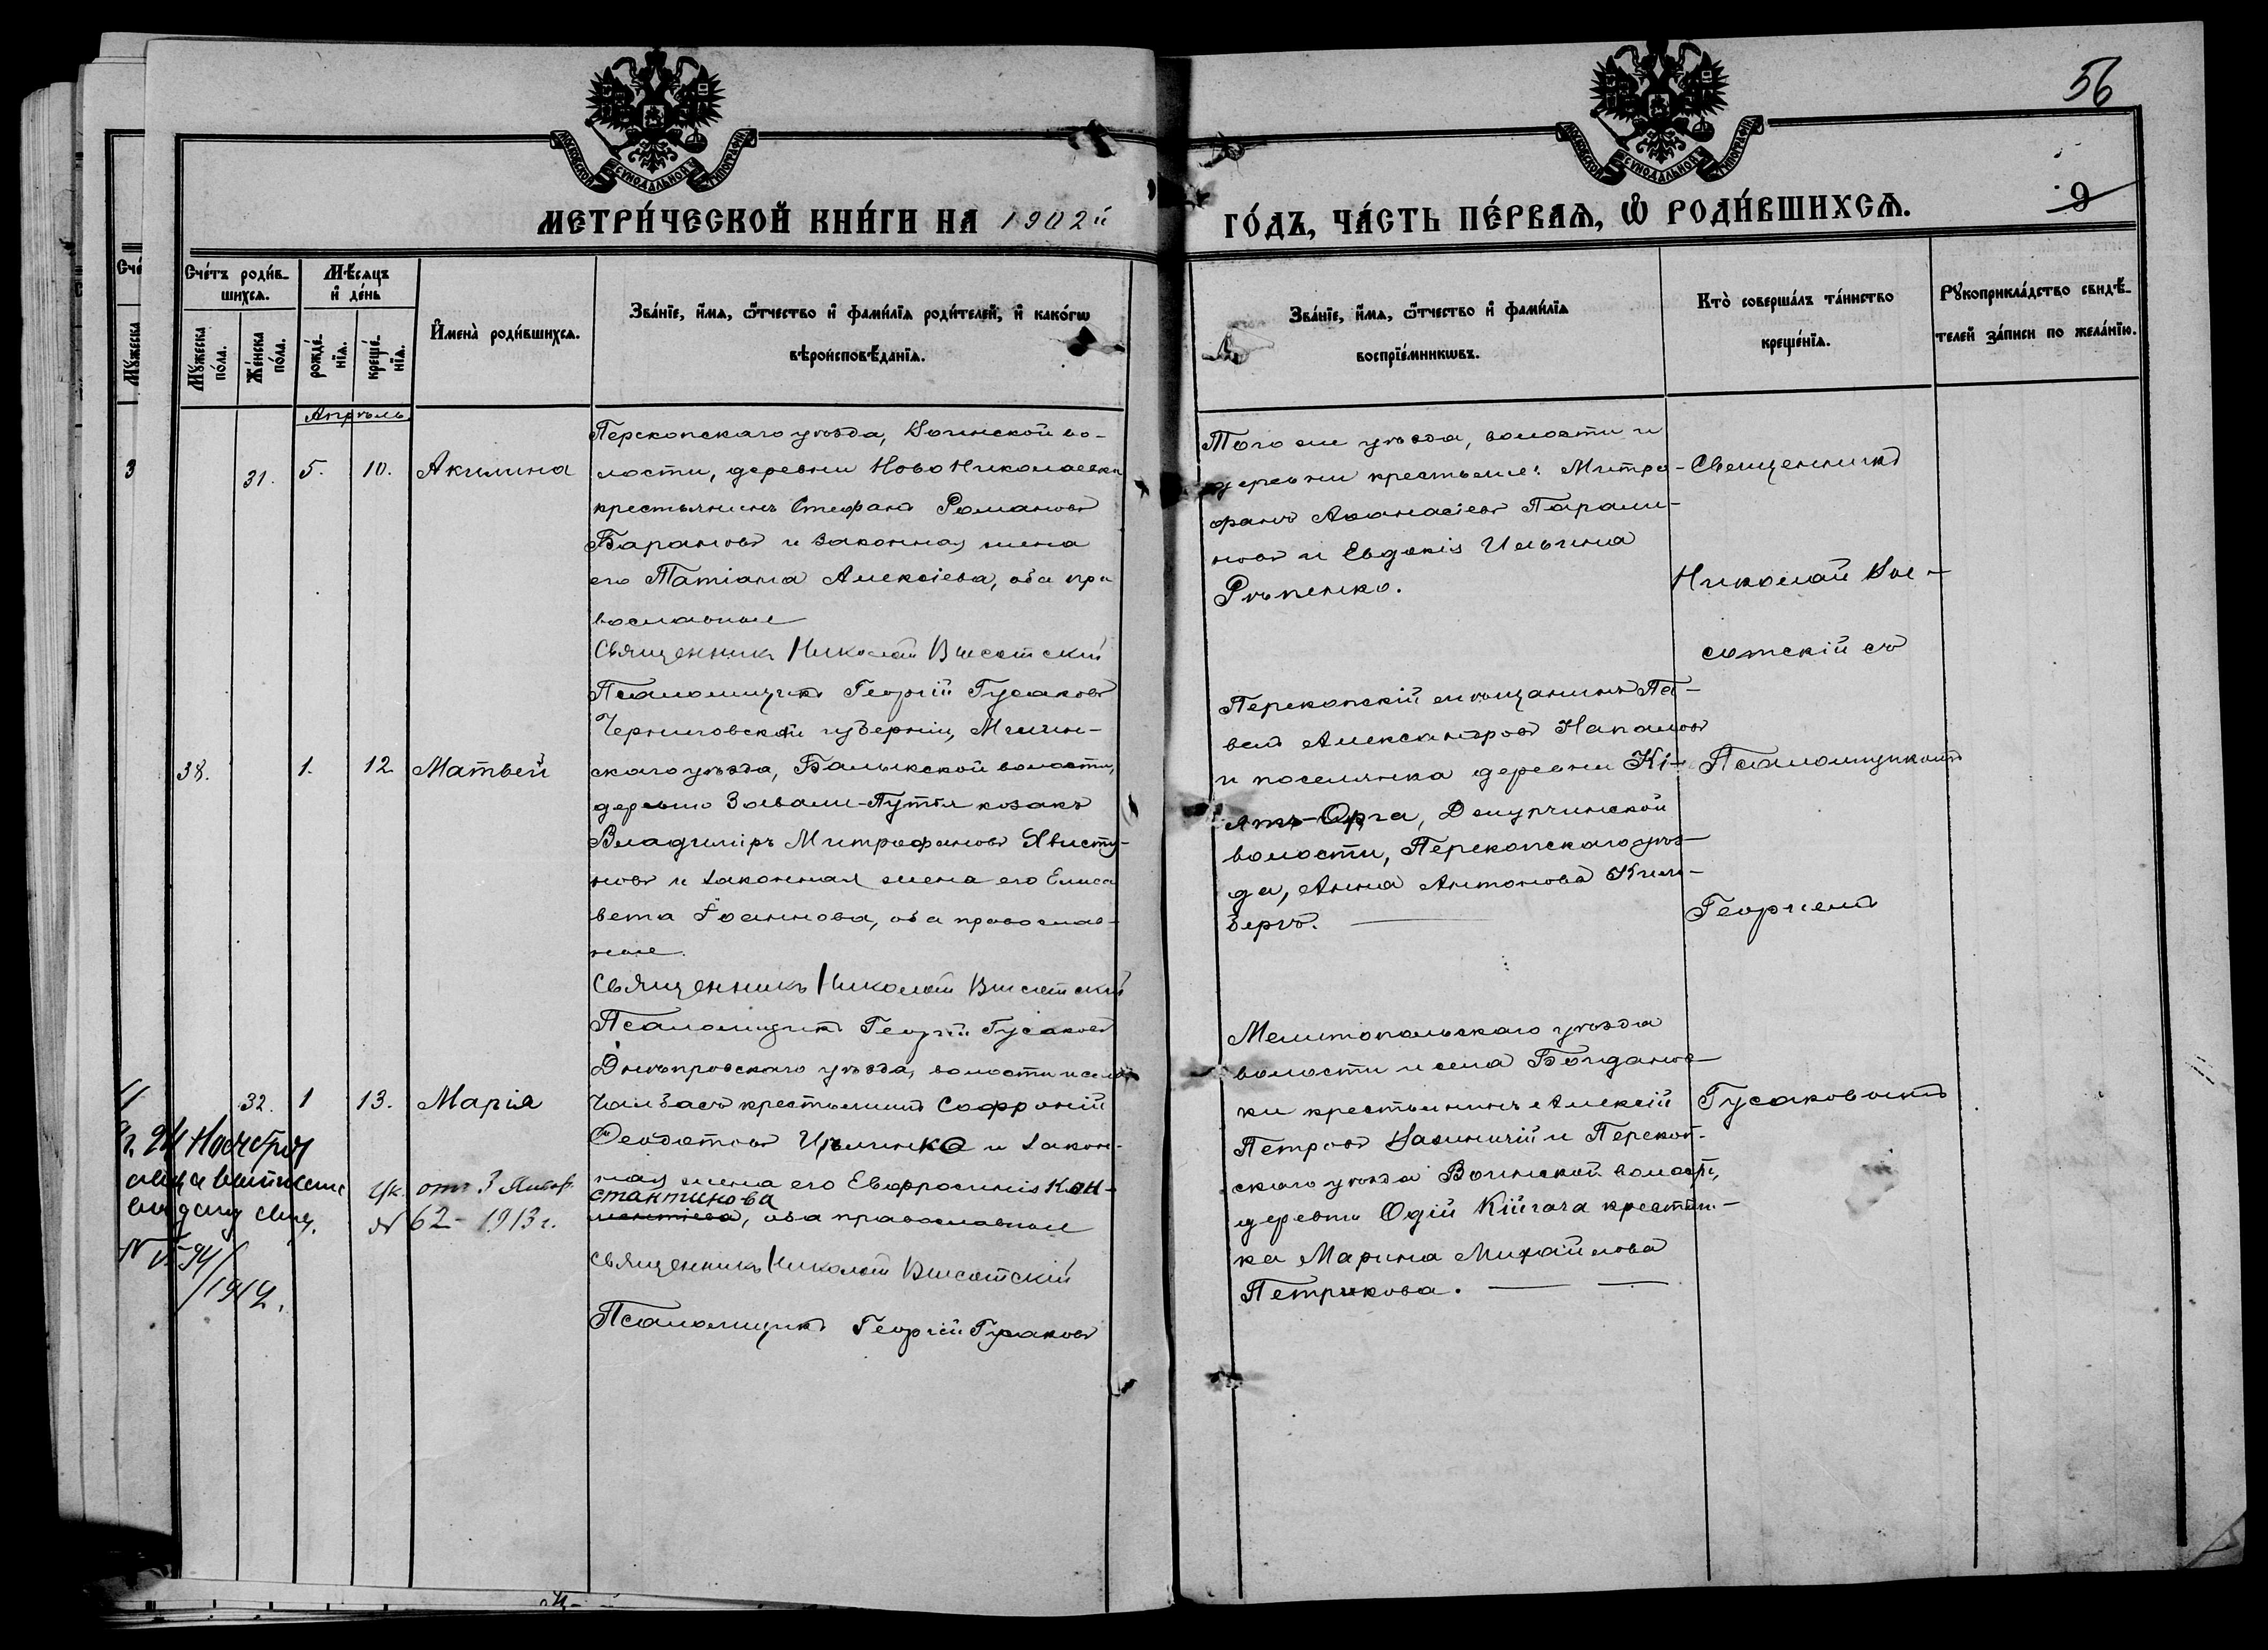 56
9
МЕТРИ́ЧЕСКОЙ КНИ́ГИ НА 1902й
ГО́ДЪ, ЧА́СТЬ ПЕ́РВАѦ, Ѡ РОДИ́ВШИХСѦ.
МОСКОВСКОЙ СѴНОДАЛЬНОЙ ТИПОГРАФІИ
МОСКОВСКОЙ СѴНОДАЛЬНОЙ ТИПОГРАФІИ
Сче́тъ роди́в-
шихсѧ.
Мꙋжеска по́ла.
Же́нска по́ла.
Мѣ́сѧцъ
и҆ де́нь
рожде́-
нїѧ.
креще́-
нїѧ.
И҆мена̀ роди́вшихсѧ.
Зва́нїе, и҆́мѧ, ѻ҆́тчество и҆ фами́лїѧ роди́телей, и҆ како́гѡ
вѣроисповѣ́данїѧ.
Зва́нїе, и҆́мѧ, ѻ҆́тчество и҆ фами́лїѧ
воспрїе́мникѡвъ.
Кто̀ соверша́лъ та́инство
креще́нїѧ.
Рꙋкоприкла́дство свидѣ́-
телей за́писи по жела́нїю.
Апрѣль
31. 5. 10. Акилина
Перекопскаго уѣзда, Воинской во-
лости, деревни Ново Николаевки
крестьянинъ Стефанъ Романовъ
Барановъ и законная жена
его Татіана Алексіева, оба пра
вославные
Священникъ Николай Высотский
Псаломщикъ Георгій Гусаковъ
Того же уѣзда, волости и
деревни крестьяне: Митро-
фанъ Аѳанасіевъ Парами-
новъ и Евдокія Ильина
Рѣпенко.
Священникъ
Николай Вы-
сотскій съ
Псаломщикомъ
Георгіемъ
Гусаковымъ
38. 1. 12 Матѳей
Черниговской губерніи, Мглин-
скаго уѣзда, Балыкской волости,
деревни Завали-Путья козакъ
Владиміръ Митрофановъ Хвисту-
новъ и законная жена его Елиса
вета Іоаннова, оба православ-
ные.
Священникъ Николай Высотский
Псаломщикъ Георгій Гусаковъ
Перекопскій мѣщанинъ Па-
велъ Александровъ Напаловъ
и поселянка деревни Кі-
ятъ-Орка, Джурчинской
волости, Перекопскаго уѣз-
да, Анна Антонова Кин-
бергъ.
32. 1 13. Марія
Днѣпровскаго уѣзда, волости и села
Чалбасъ крестьянинъ Софроній
Ѳеодотовъ Ирьлинко и закон-
ная жена его Евфросинія Кон-
стантинова
оба православные
Священникъ Николай Высотскій
Псаломщикъ Георгій Гусаковъ
Мелитопольскаго уѣзда
волости и села Богданов-
ки крестьянинъ Алексій
Петровъ и Перекоп-
скаго уѣзда Воинской волости,
деревни Одій Кійгача крестьян-
ка Марина Михайлова
Петрикова.
Ук. отъ 3 Январ.
№ 62 - 1913 г.
1912.